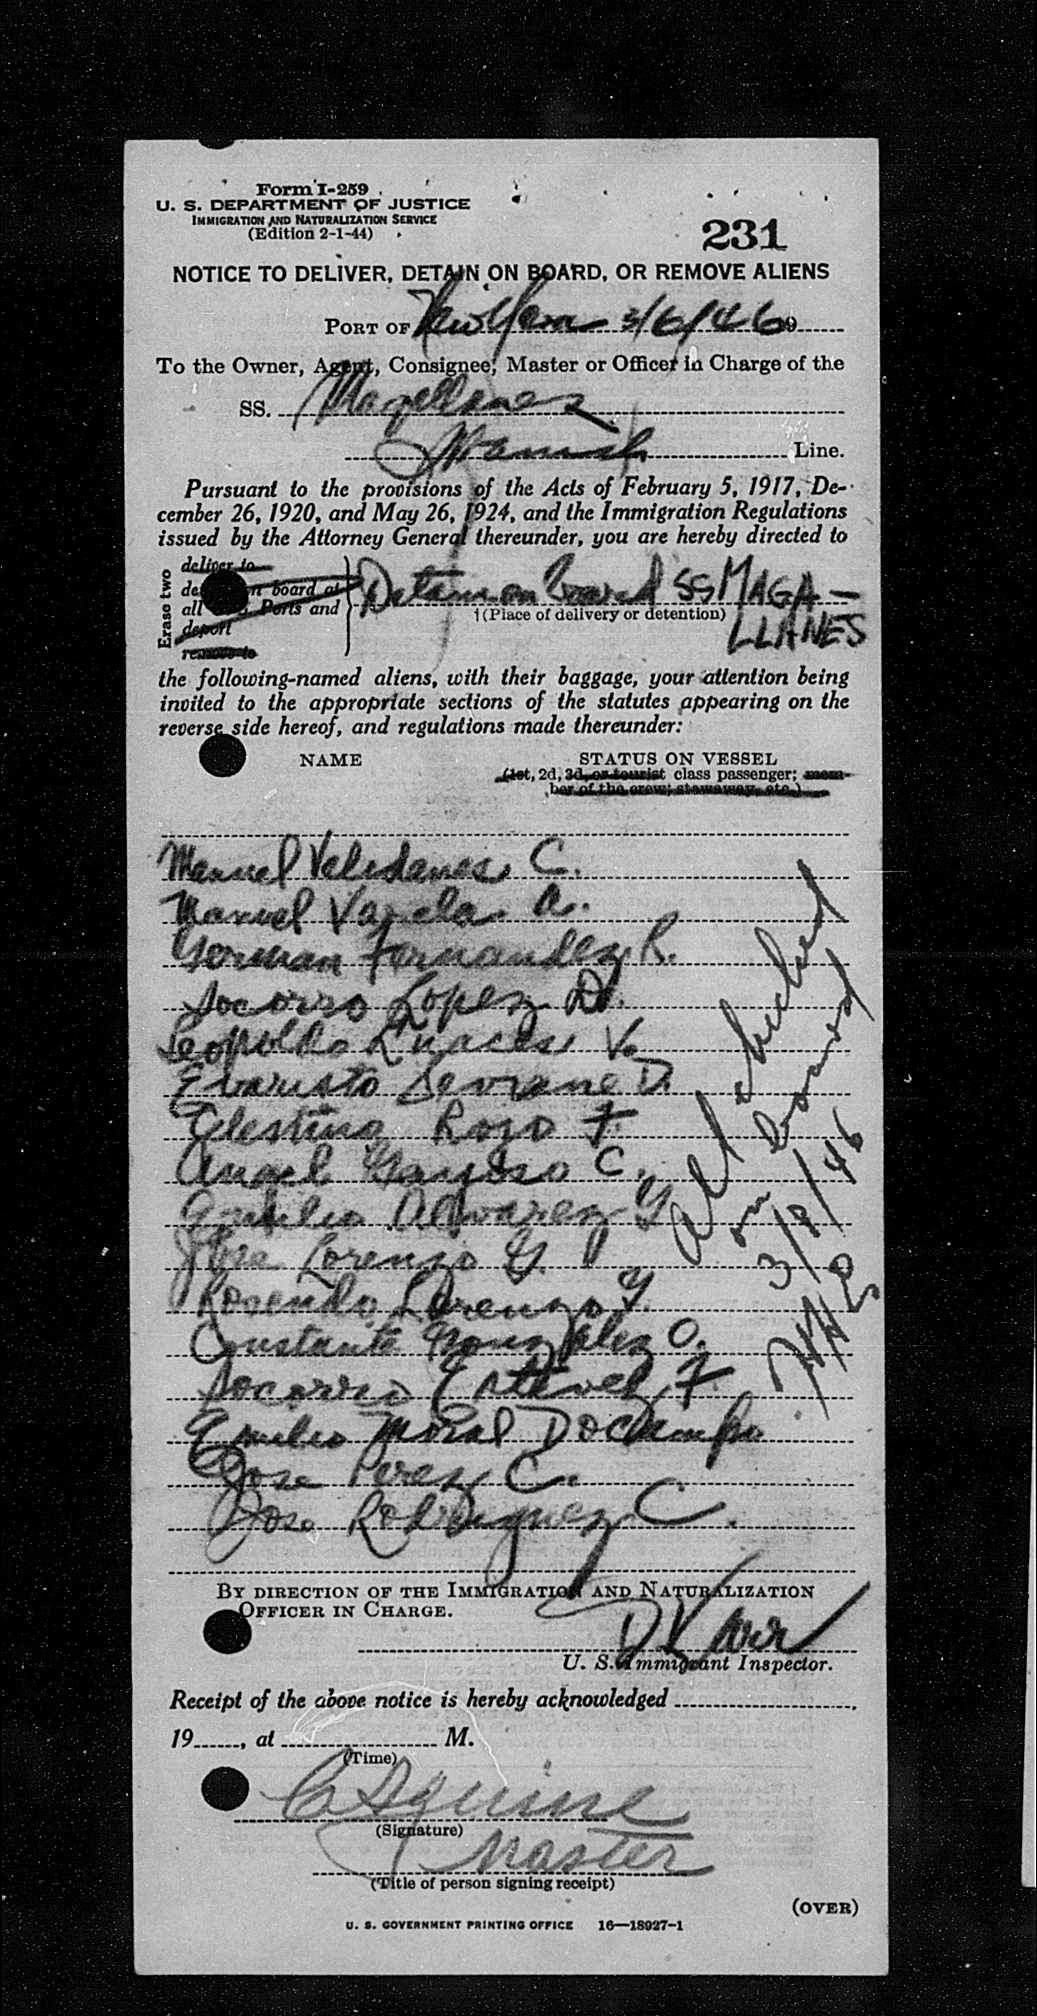 Form I-259
U. S. DEPARTMENT OF JUSTICE
IMMIGRATION AND NATURALIZATION SERVICE
(Edition 2-1-44)
231
NOTICE TO DELIVER, DETAIN ON BOARD, OR REMOVE ALIENS
PORT OF New York 3/6/46 19
To the Owner, Agent, Consignee, Master or Officer in Charge of the
SS. Magellanes
Spanish Line.
Pursuant to the provisions of the Acts of February 5, 1917, De-
cember 26, 1920, and May 26, 1924, and the Immigration Regulations
issued by the Attorney General thereunder, you are hereby directed to
Erase two
deliver to
detain on board at
all U.S. Ports and
deport
remove to
Detain on Board SS MAGA-
LLANES
(Place of delivery or detention)
the following-named aliens, with their baggage, your attention being
invited to the appropriate sections of the statutes appearing on the
reverse side hereof, and regulations made thereunder:
NAME STATUS ON VESSEL
(1st, 2d, 3d, or tourist class passenger; mem-
ber of the crew; stowaway, etc.)
Manuel C.
Manuel Varela A.
German Fernandez R.
Socorro Lopez D.
Leopoldo V.
Evaristo Seoane D.
Celestino Rojo F.
Angel C.
Emilio Alvarez G
Jose Lorenzo G.
Rosendo Lorenzo G.
Constante Gonzalez O.
Socorro Estevez F.
Emilio Moral Docampo
Jose Perez C.
Jose Rodriguez C.
All checked
on board
3/8/46
BY DIRECTION OF THE IMMIGRATION AND NATURALIZATION
OFFICER IN CHARGE.
D Karr
U. S. Immigrant Inspector.
Receipt of the above notice is hereby acknowledged
19, at M.
(Time)
(Signature)
Master
(Title of person signing receipt)
(OVER)
U. S. GOVERNMENT PRINTING OFFICE 16—18927-1